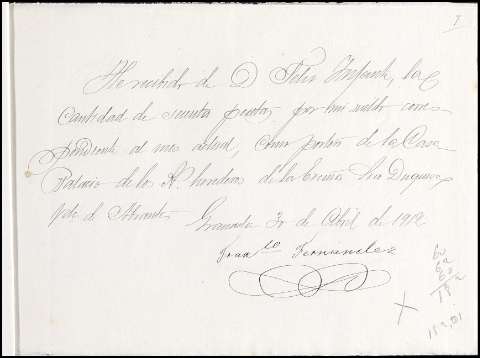 1
He recibido de D. Felix Infante, la
Cantidad de sesenta pesetas, por mi sueldo corres
pondiente al mes actual, como portero de la Casa
Palacio de los Sres. herederos de la Excma Sra Duquesa
Vda de Abrantes. Granada 30 de Abril de 1912
Franco Fernandez
60